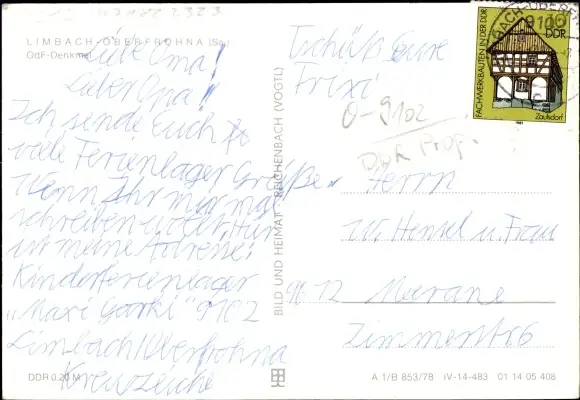 LIMBACH-OBERFROHNA (Sa.)
OdF-Denkmal
Liebe Oma!
Lieber Opa!
Ich sende Euch
viele Ferienlager Grüße.
Wenn Ihr mir mal
schreiben wollt. Hier
ist meine Adresse:
Kinderferienlager
"Maxi Gorki" 9102
Limbach/Oberfrohna
Kreuzeiche
Tschüß Eure
Trixi
O-9102
DDR Prop.
Herrn
W. Hensel u. Frau
9612 Meerane
Zimmerstr 6
BILD UND HEIMAT REICHENBACH (VOGTL)
DDR 0,20 M
A 1/B 853/78 IV-14-483 01 14 05 408
FACHWERKBAUTEN IN DER DDR
10
DDR
Zaulsdorf
1981
9102